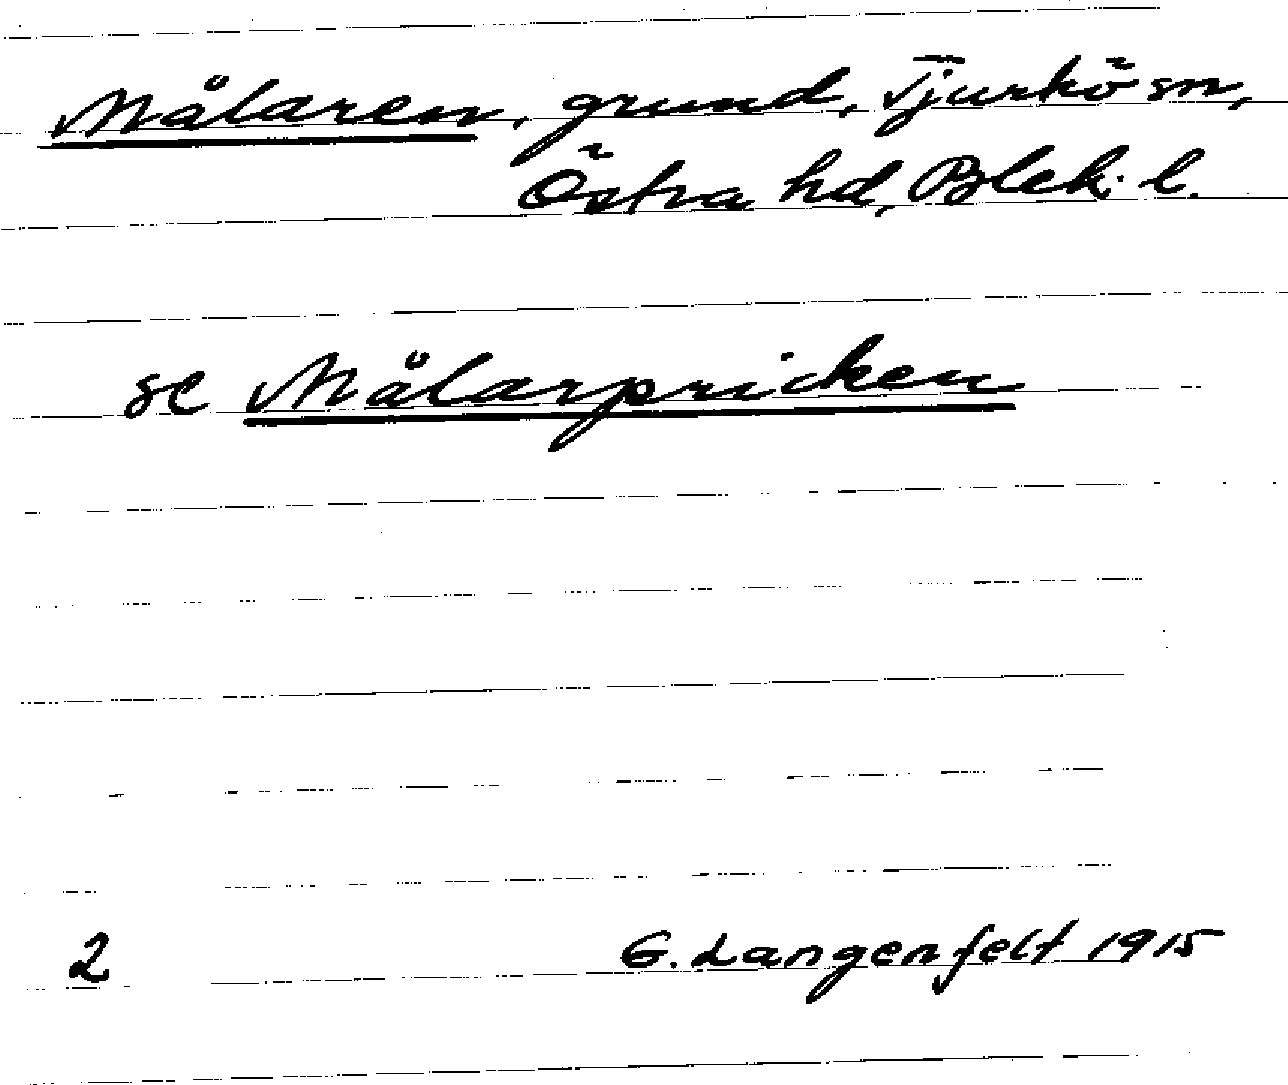 Målaren, grund, Tjurkö sn,
Östra hd, Blek. l.
se Målarpricken
2 G. Langenfelt 1915